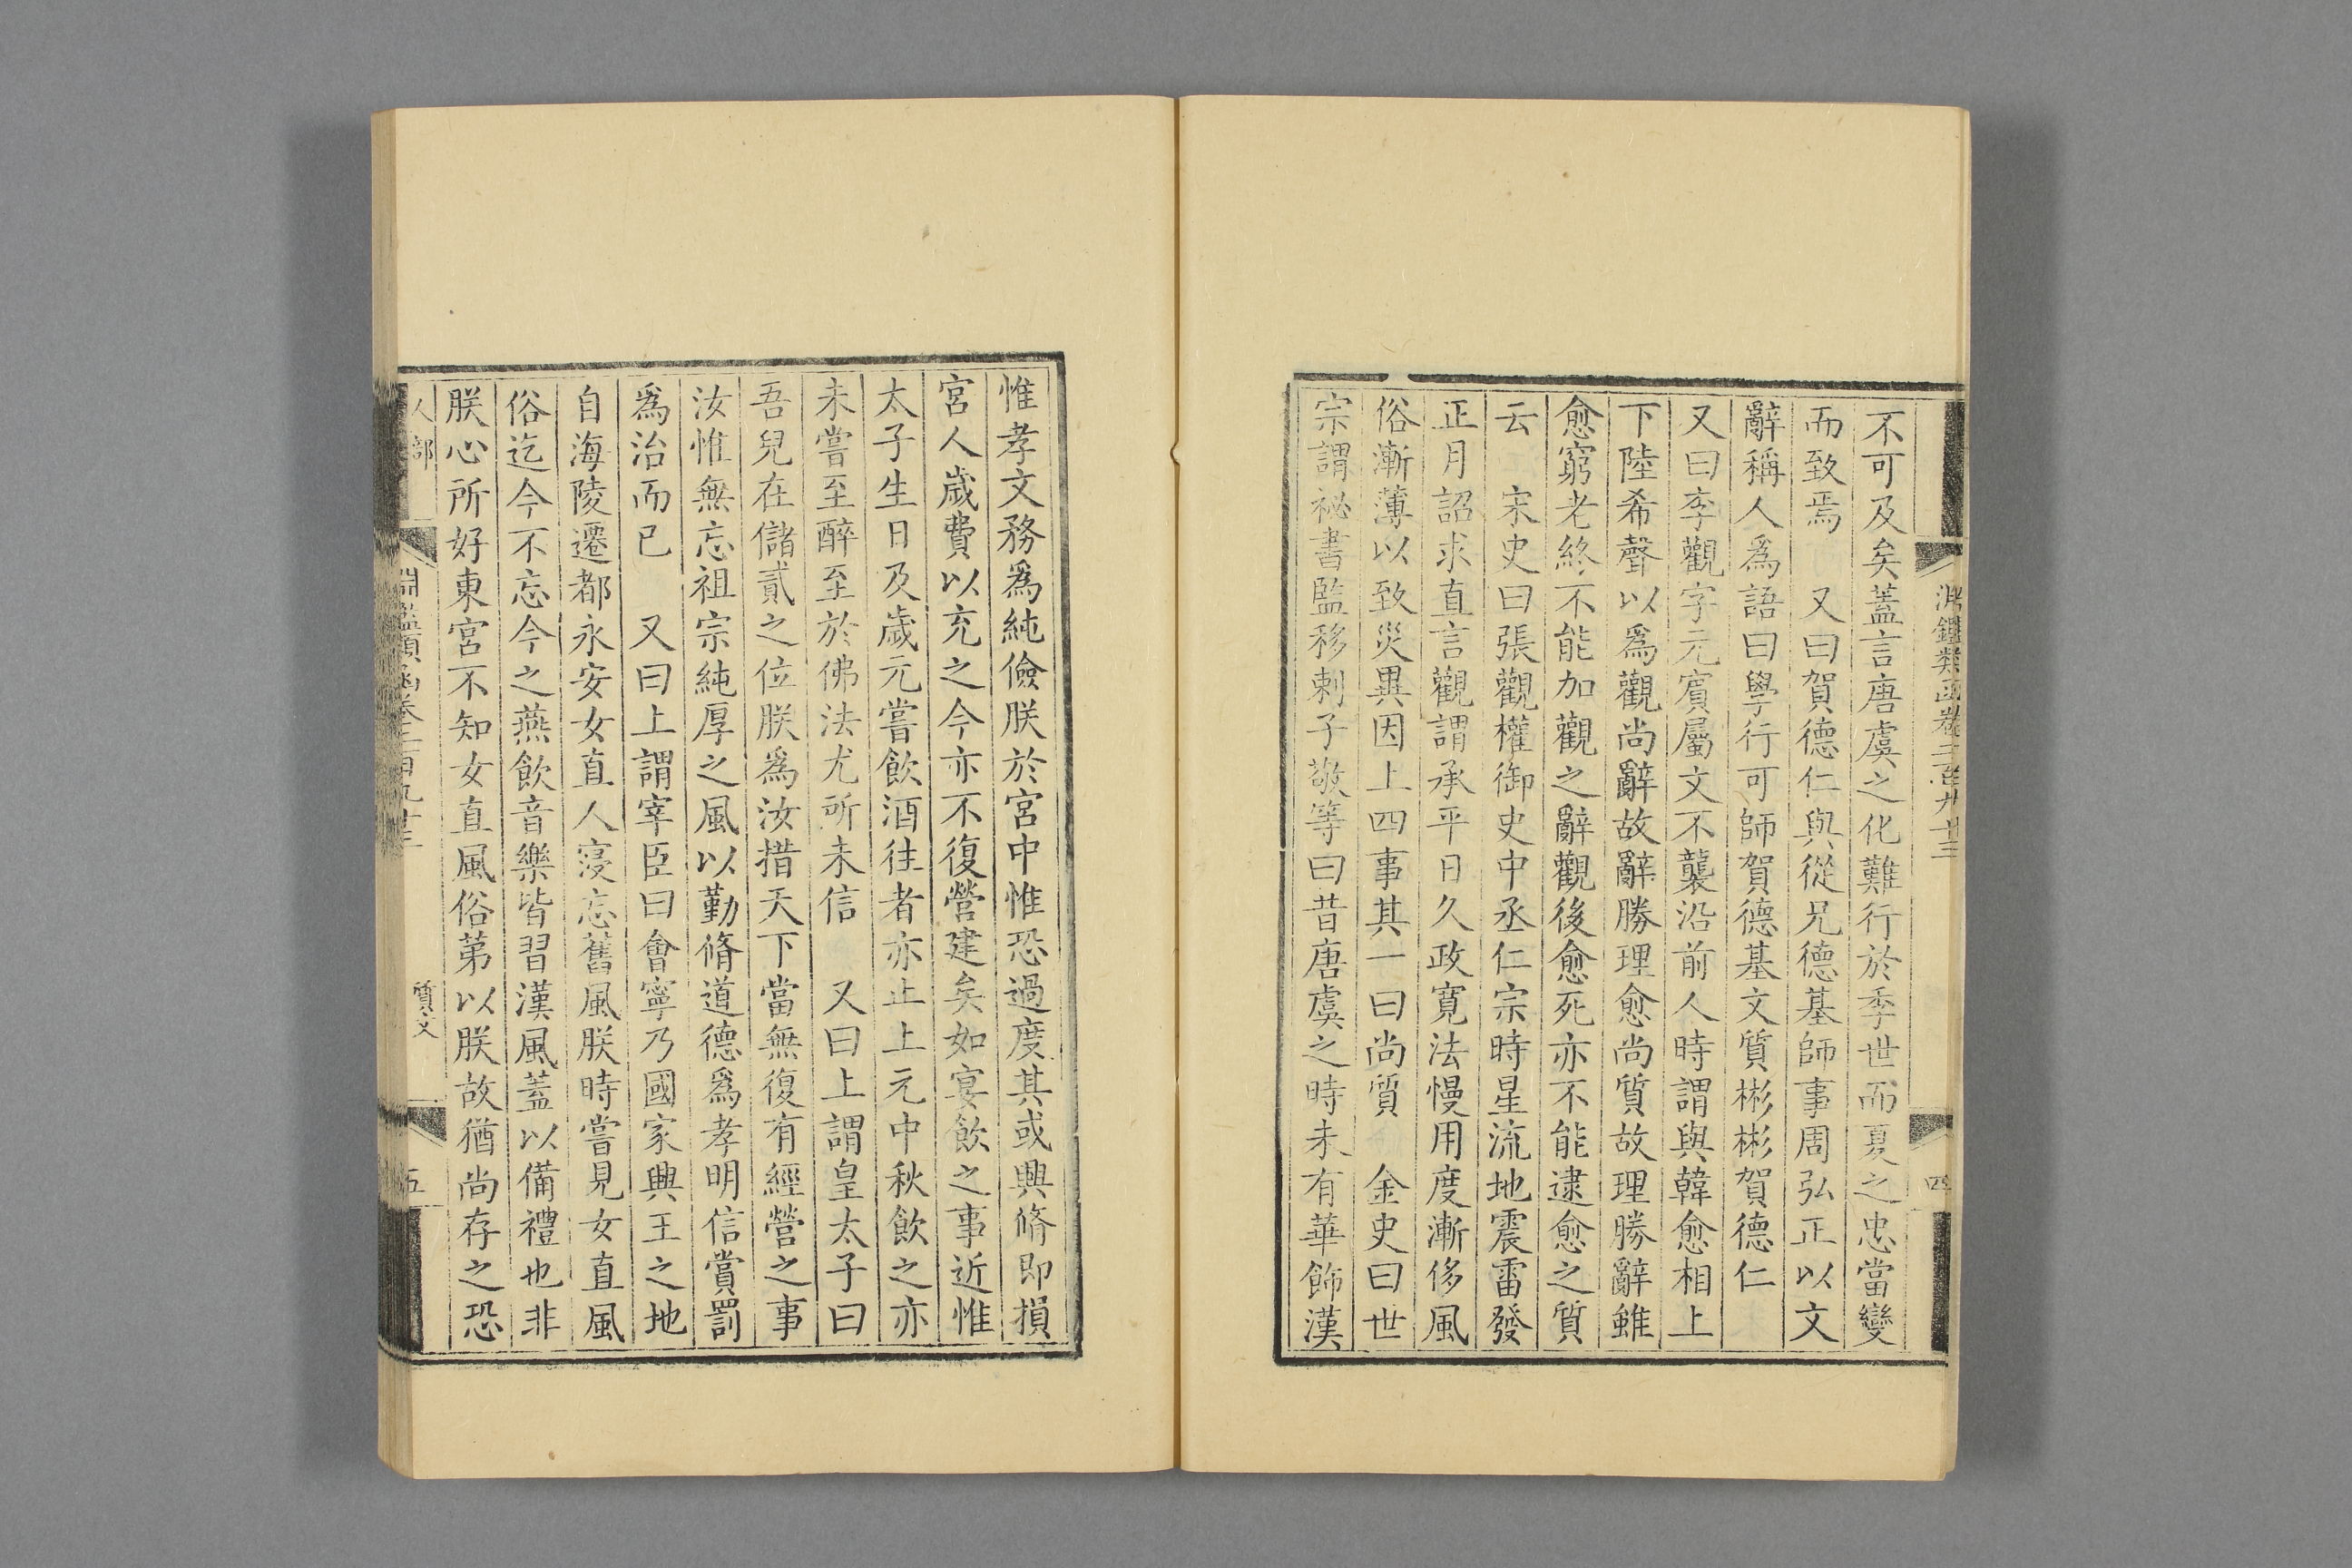 淵鑑類函卷二百九十三
四
不可及矣蓋言唐虞之化難行於季世而夏之忠當變
而致焉　又曰賀德仁與從兄德基師事周弘正以文
辭稱人爲語曰學行可師賀德基文質彬彬賀德仁
又曰李觀字元賓屬文不襲沿前人時謂與韓愈相上
下陸希聲以爲觀尚辭故辭勝理愈尚質故理勝辭雖
愈窮老終不能加觀之辭觀後愈死亦不能逮愈之質
云　宋史曰張觀權御史中丞仁宗時星流地震雷發
正月詔求直言觀謂承平日久政寛法慢用度漸侈風
俗漸薄以致災異因上四事其一曰尚質　金史曰世
宗謂祕書監移剌子敬等曰昔唐虞之時未有華飾漢
惟孝文務爲純儉朕於宮中惟恐過度其或興脩即損
宮人歲費以充之今亦不復營建矣如宴飲之事近惟
太子生日及歲元嘗飲酒往者亦止上元中秋飲之亦
未嘗至醉至於佛法尤所未信　又曰上謂皇太子曰
吾兒在儲貳之位朕爲汝措天下當無復有經營之事
汝惟無忘祖宗純厚之風以勤脩道德爲孝明信賞罰
爲治而已　又曰上謂宰臣曰會寧乃國家興王之地
自海陵遷都永安女直人寖忘舊風朕時嘗見女直風
俗迄今不忘今之燕飲音樂皆習漢風蓋以備禮也非
朕心所好東宮不知女直風俗第以朕故猶尚存之恐
人部
淵鑑類函卷二百九十三
質文
五